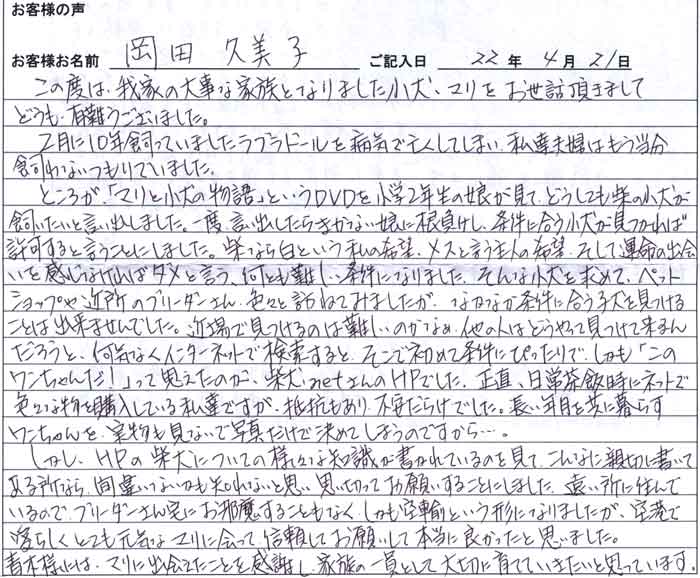 お客様の声
お客様お名前 岡田 久美子 ご記入日 22年 4月 21日
この度は、我家の大事な家族となりました小犬、マリを お世話頂きまして
どうも 有難うございました。
2月に10年飼っていましたラブラドールを 病気で亡くしてしまい、私達夫婦はもう当分
飼わないつもりでいました。
ところが、「マリと小犬の物語」というDVDを小学2年生の娘が見て、どうしても柴の小犬が
飼いたいと言い出しました。一度、言い出したらきかない娘に根負けし、条件に合う小犬が見つかれば
許可すると言うことにしました。柴なら白という私の希望、メスと言う主人の希望、そして運命の出会
いを感じなければダメと言う、何とも難しい条件になりました。そんな小犬を求めて、ペット
ショップや 近所のブリーダーさん、色々と訪ねてみましたが、なかなか条件に合う犬を見つける
ことは出来ませんでした。近場で見つけるのは難しいのかなぁ、他の人はどうやって見つけて来るん
だろうと、何気なくインターネットで検索すると、そこで初めて条件にぴったりで、しかも「この
ワンちゃんだ!」って思えたのが、柴犬.netさんのHPでした。正直、日常茶飯時にネットで
色々な物を購入している私達ですが、抵抗もあり、不安だらけでした。長い年月を共に暮らす
ワンちゃんを、実物も見ないで写真だけで決めてしまうのですから…。
しかし、HPの柴犬についての様々な知識が書かれているのを見て、こんなに親切に書いて
ある所なら、間違いないかも知れないと思い、思い切ってお願いすることにしました。遠い所に住んで
いるので、ブリーダーさん宅にお邪魔することもなく、しかも空輸という形になりましたが、空港で
愛らしく とても元気なマリに会って、信頼してお願いして本当に良かったと思いました。
青木様には、マリに出会えたことを感謝し、家族の一員として大切に育てていきたいと思っています。